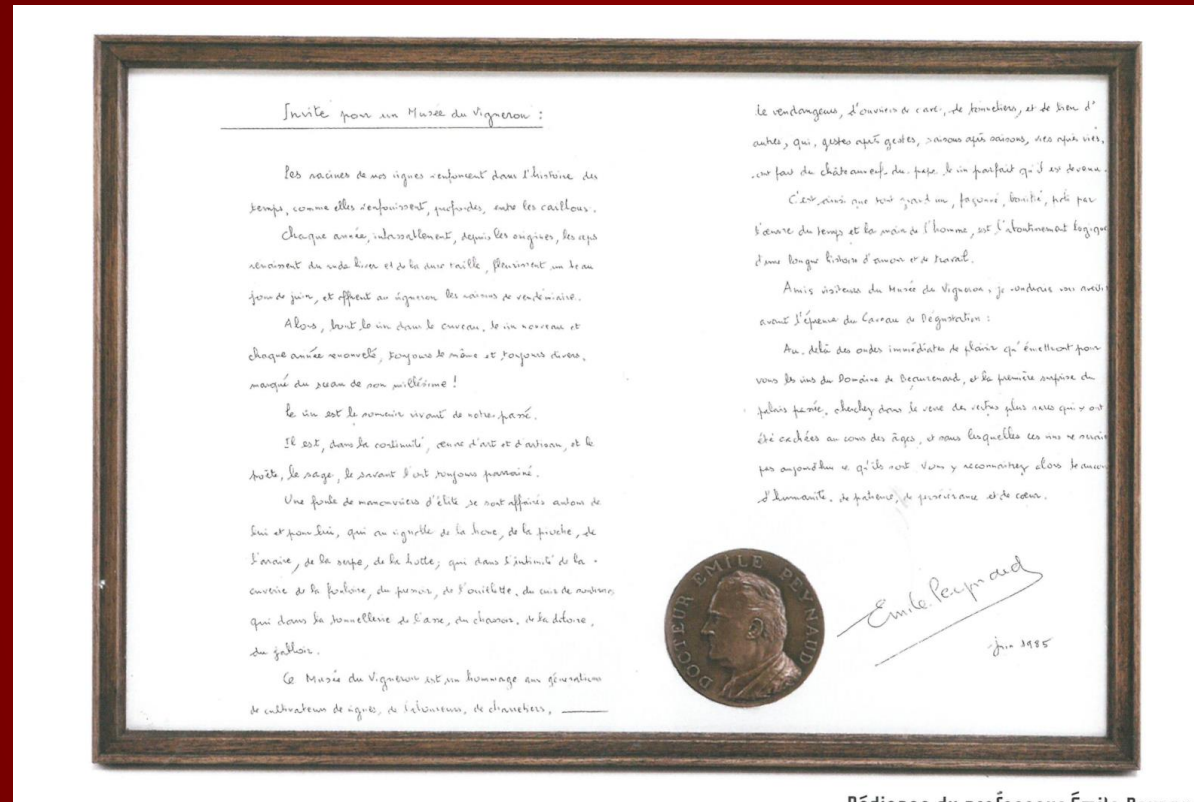 Invite pour un Musée du Vigneron :
Les racines de nos vignes s'enfoncent dans l'histoire des
temps, comme elles s'enfouissent, profondes, entre les cailloux.
Chaque année, inlassablement, depuis les origines, les ceps
renaissent du rude hiver et de la dure taille, fleurissent un beau
jour de juin, et offrent au vigneron les raisins de vendémiaire.
Alors, bout le vin dans le cuveau, le vin nouveau et
chaque année renouvelé, toujours le même et toujours divers,
marqué du sceau de son millésime !
Le vin est le souvenir vivant de notre passé.
Il est, dans la continuité, œuvre d'art et d'artisan, et le
poète, le sage, le savant l'ont toujours parrainé.
Une foule de manouvriers d'élite se sont affairés autour de
lui et pour lui, qui au vignoble de la houe, de la pioche, de
l'araire, de la serpe, de la hotte ; qui dans l'intimité de la
cuverie de la fouloire, du pressoir, de l'ouillette, du cuir de
qui dans la tonnellerie de l'asse, du chassoir, de la doloire,
du jabloir.
Ce Musée du Vigneron est un hommage aux générations
de cultivateurs de vignes, de laboureurs, de charretiers,
de vendangeurs, d'ouvriers de cave, de tonneliers, et de bien d'
autres, qui, gestes après gestes, saisons après saisons, vies après vies,
ont fait du châteauneuf-du-pape le vin parfait qu'il est devenu.
C'est ainsi que tout grand vin, façonné, bonifié, poli par
l'œuvre du temps et la main de l'homme, est l'aboutissement logique
d'une longue histoire d'amour et de travail.
Amis visiteurs du Musée du Vigneron, je voudrais vous avertir
avant l'épreuve du Caveau de Dégustation :
Au-delà des ondes immédiates de plaisir qu'émettront pour
vous les vins du Domaine de Beaurenard, et la première surprise du
palais passée, cherchez dans le verre des vertus plus rares qui y ont
été cachées au cours des âges, et sans lesquelles ces vins ne seraient
pas aujourd'hui ce qu'ils sont. Vous y reconnaîtrez alors beaucoup
d'humanité, de patience, de persévérance et de cœur.
DOCTEUR EMILE PEYNAUD
Emile Peynaud
juin 1985